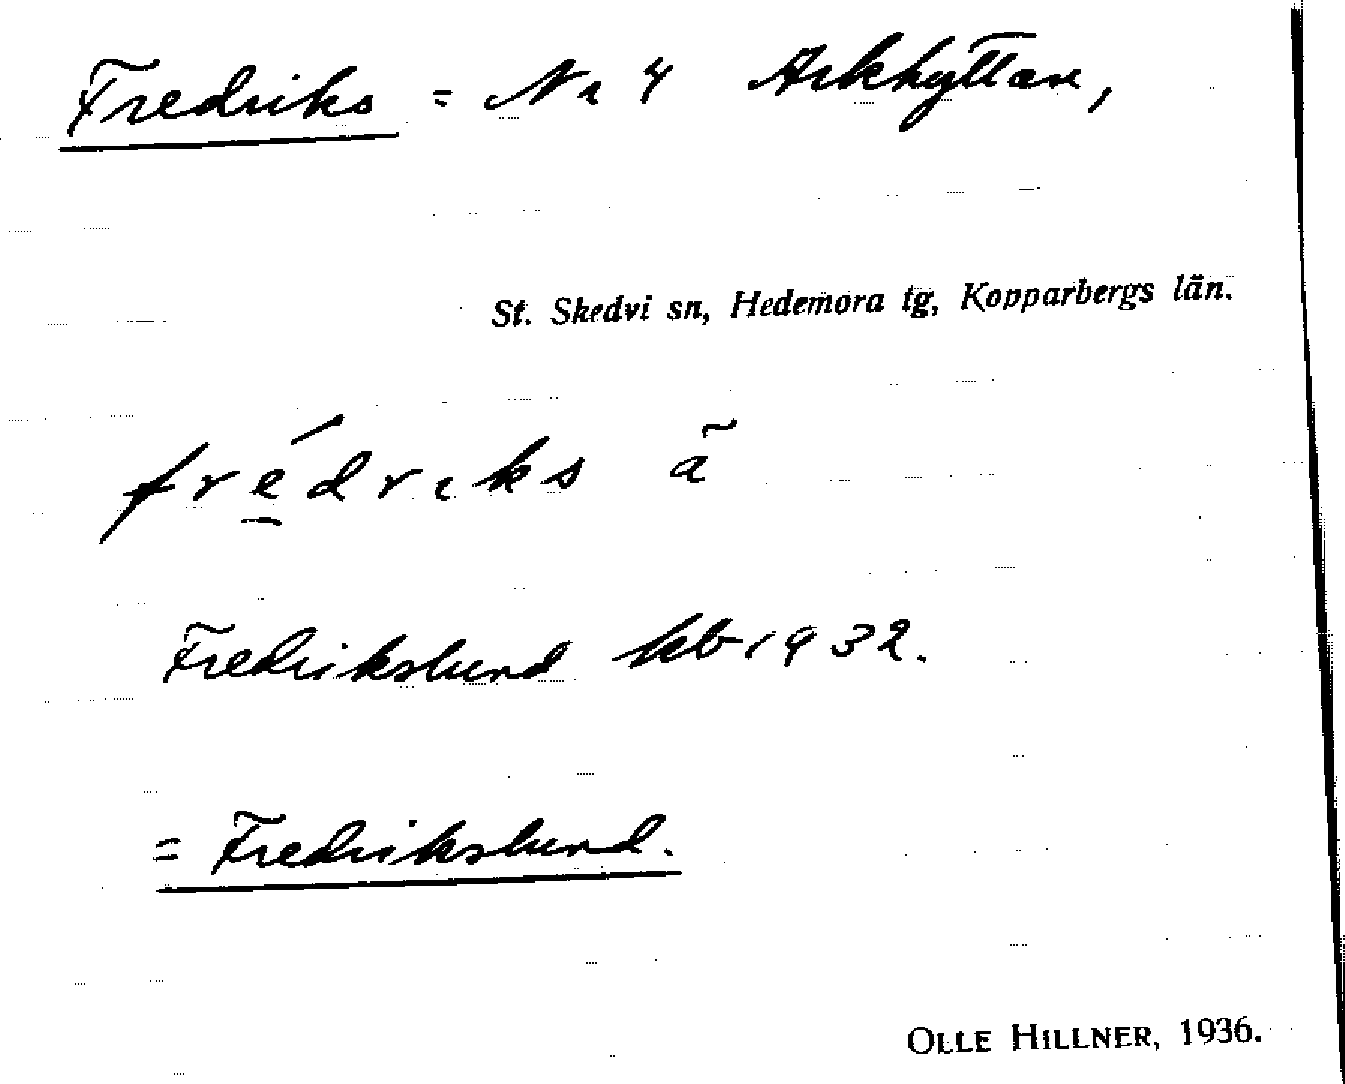 Fredriks = Nr 4 Arkhyttan,
St. Skedvi sn, Hedemora tg, Kopparbergs län.
fré̲drıks ã
Fredrikslund kb 1932.
= Fredrikslund.
OLLE HILLNER, 1936.